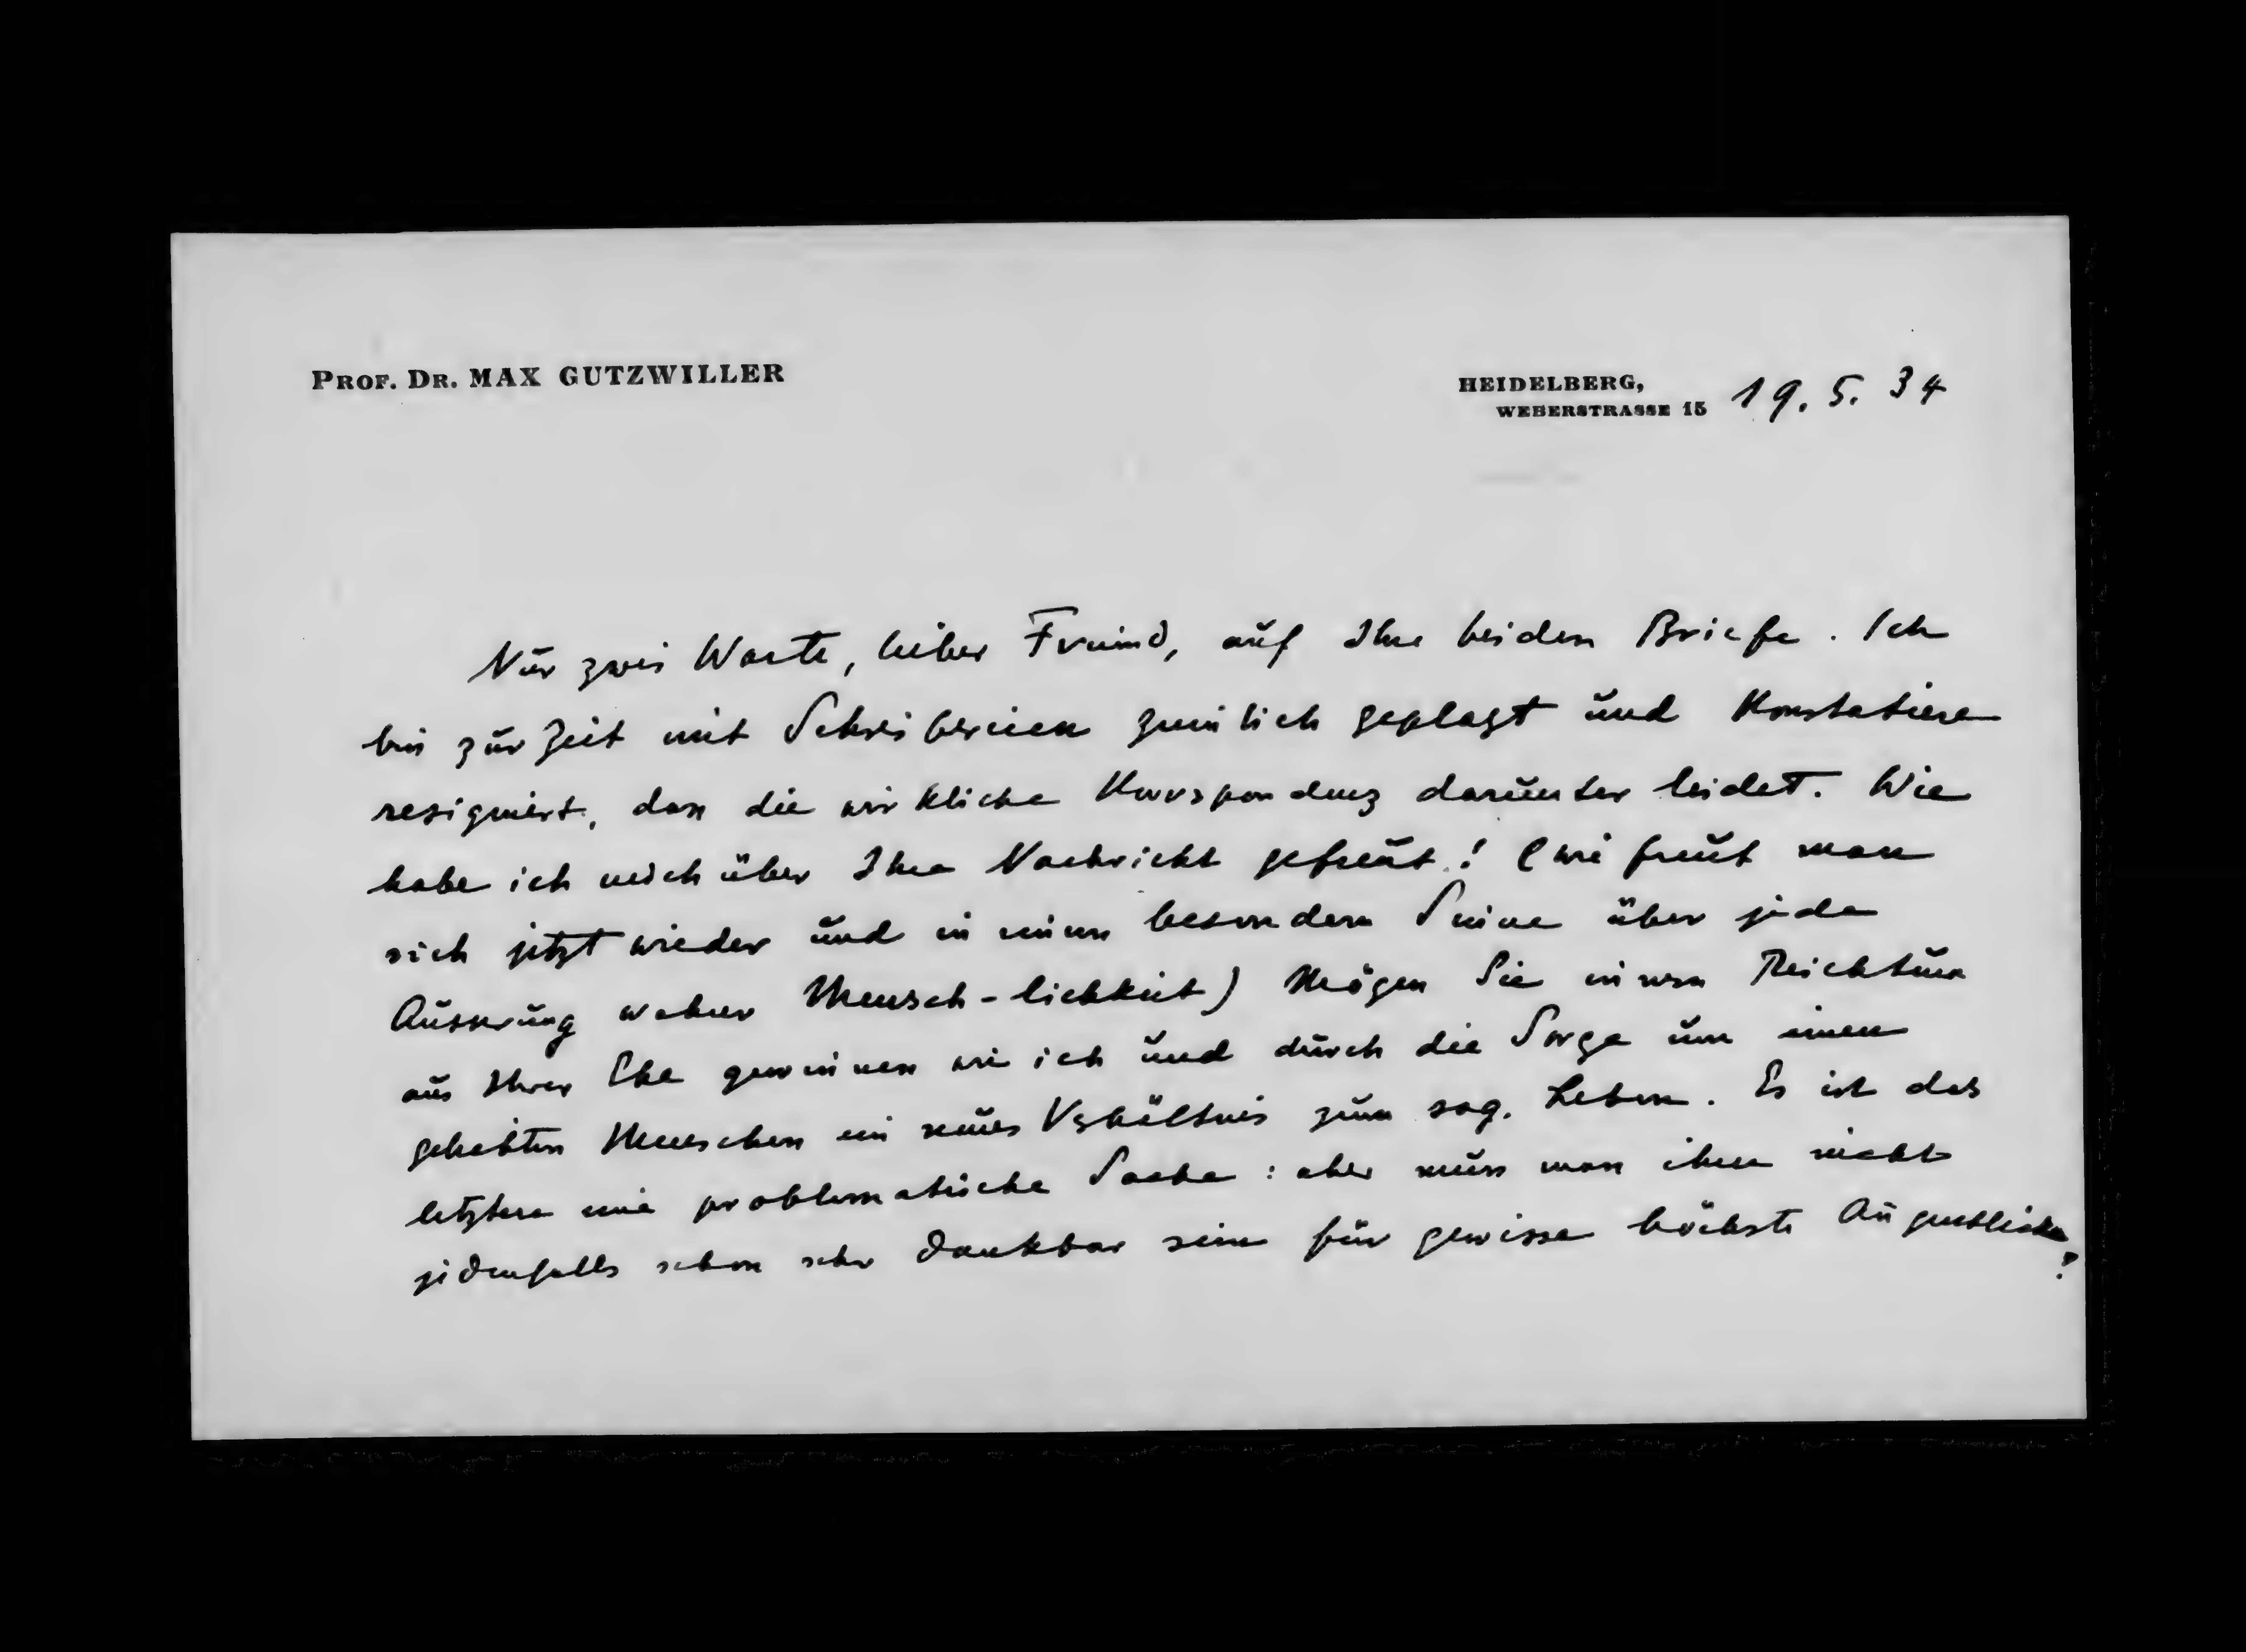 PROF. DR. MAX GUTZWILLER
HEIDELBERG,
WEBERSTRASSE 15 19. 5. 34
Nur zwei Worte, lieber Freund, auf Ihre beiden Briefe. Ich
bin zur Zeit mit Schreibereien ziemlich geplagt und konstatiere
resigniert, dass die wirkliche Korrespondenz darunter leidet. Wie
habe ich mich über Ihre Nachricht gefreut! (wie freut man
sich jetzt wieder und in einem besondern Sinne über jede
Äusserung wahrer Mensch-lichkeit) Mögen Sie einen Reichtum
aus Ihrer Ehe gewinnen wie ich und durch die Sorge um einen
geliebten Menschen ein neues Verhältnis zum sog. Leben. Es ist das
letztere eine problematische Sache: aber muss man ihm nicht
jedenfalls schon sehr dankbar sein für gewisse höchste Augenblicke?